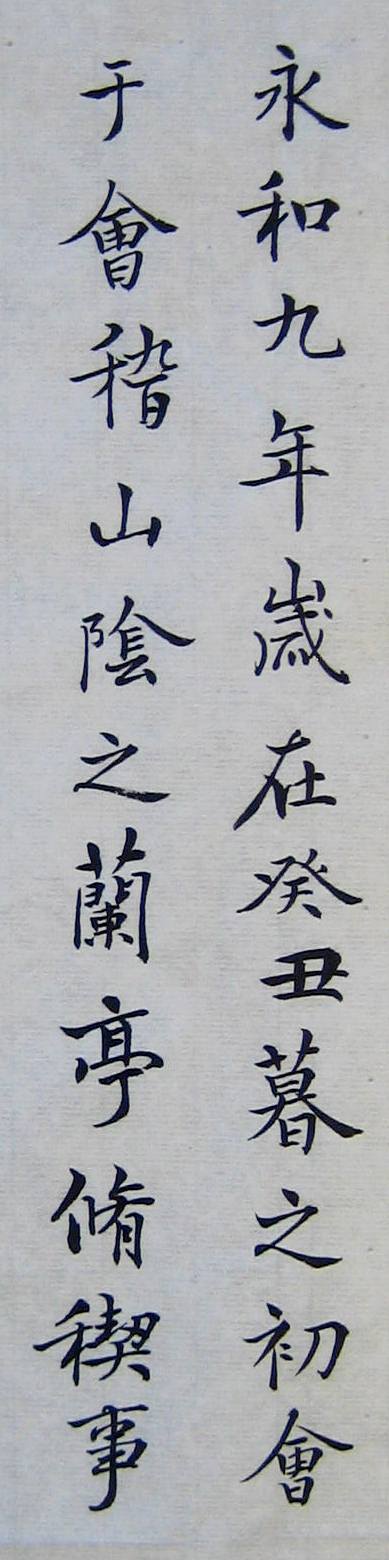 永和九年歲在癸丑暮之初會
于會稽山陰之蘭亭脩稧事